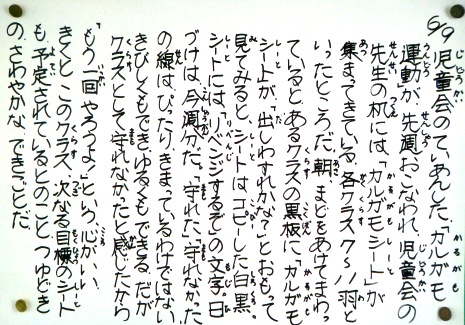 6/9 児童会のていあんした、「カルガモ
運動」が、先週、おこなわれ、児童会の
先生の机には、「カルガモシート」が
集まってきている。各クラス7〜11羽と
いったところだ。朝、まどをあけてまわっ
ていると、あるクラスの黒板に、「カルガモ
シートが、「出しわすれかな?」とおもって
見てみると、シートは、コピーした白黒。
シートには、「リベンジするぞ」の文字。日
づけは、今週分だ。「守れた、守れなかった」
の線は、ぴったり、きまっているわけではない。
きびしくもできゆるくもできる。だが、
クラスとして守れなかったと感じたから
「もう一回やろうよ!」という、心がいい。
きくと、このクラス、次なる目標のシート
も、予定されているとのこと。つゆどき
の、さわやかな、できごとだ。